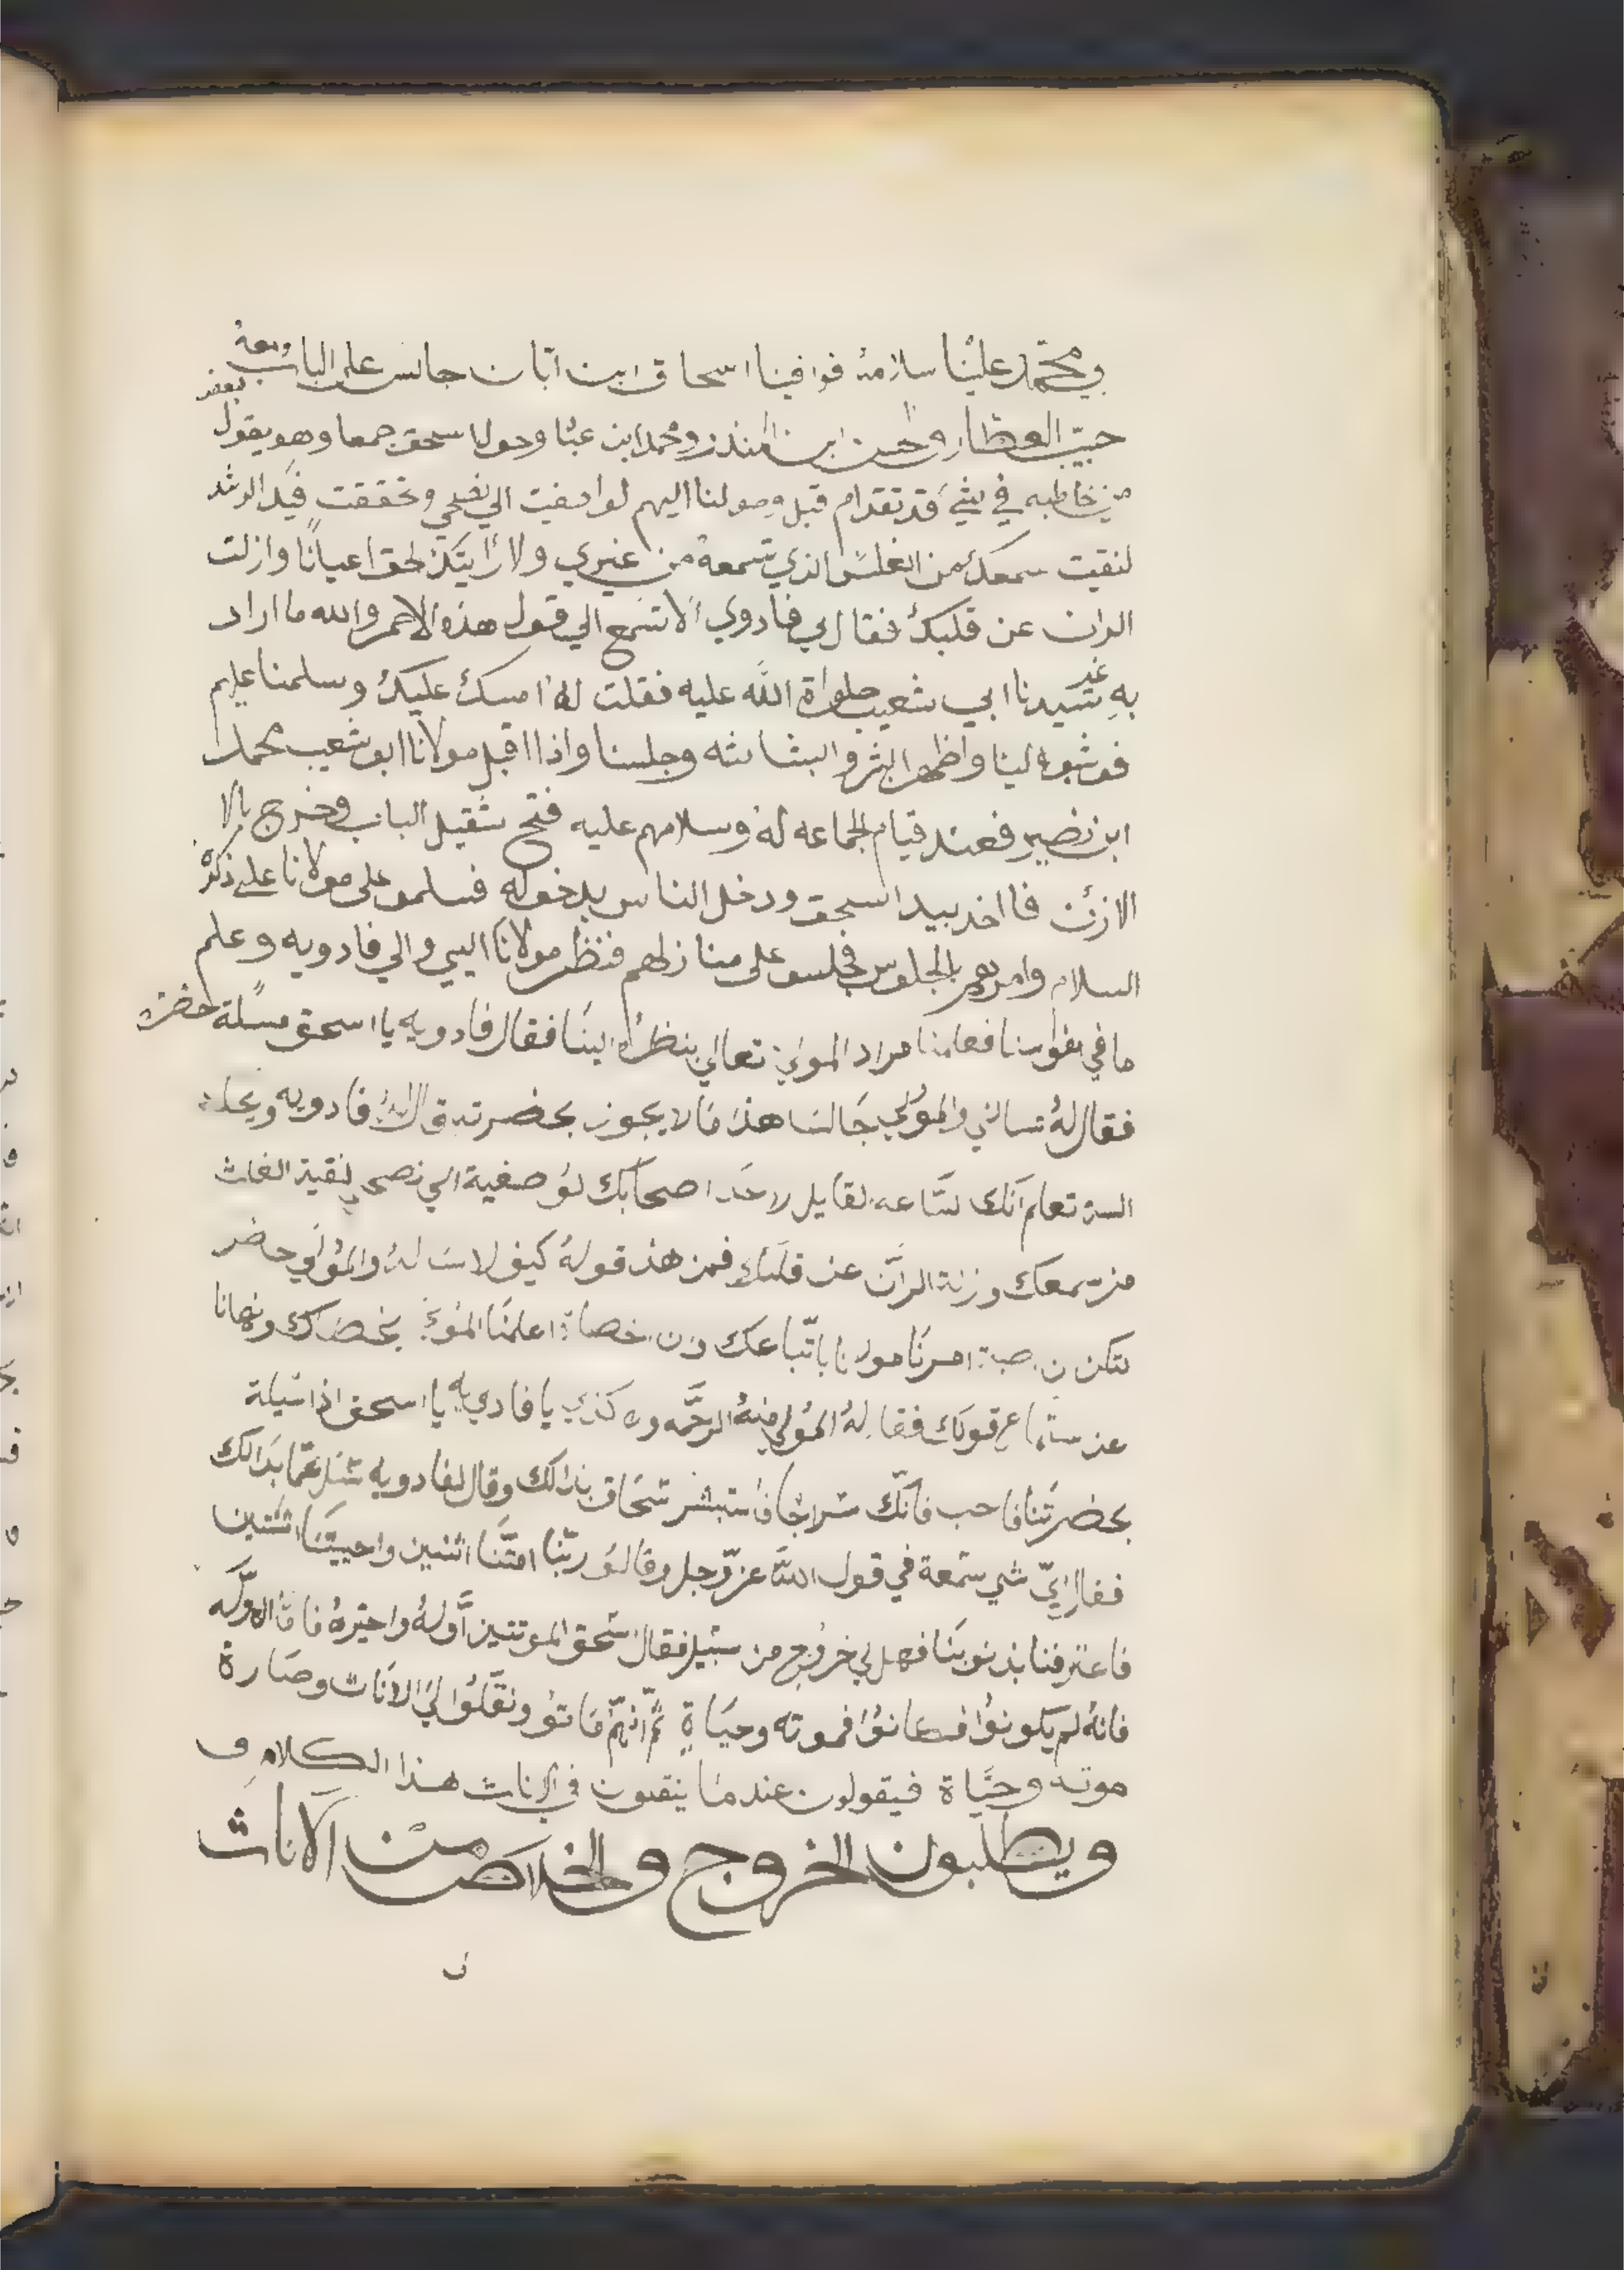 ومحمد علينا سلامه فوافينا اسحاق ابن ابان جالس على الباب ومعه بعض
حبيب العطار وحسن ابن المنذر ومحمد ابن عبا وحول اسحق جمعا وهو يقول
من خاطبه في شيء قد تقدام قبل وصولنا اليهم لو اصفيت الي نصحي وتحققت فيك الرشد
لنقيت سمعك من الغلس الذي تسمعه من غيري ولا رايتك لحق اعيانا وازلت
الران عن قلبك فقال لي فادوي الا تسمع الي قول هذه الاحمر والله ما اراد
به غير سيدنا ابي شعيب صلواة الله عليه فقلت له امسك عليك وسلمنا عليهم
فوثبوا الينا واظهر البشر والبشاشه وجلسنا واذا اقبل مولانا ابو شعيب محمد
ابن نصير فعند قيام الجماعه له وسلامهم عليه فتح شقيل الباب وخرج بالا
الازن فااخد بيد اسحق ودخل الناس بدخوله فسلمو على مولانا علي ذكره
السلام وامرهم بالجلوس فجلسو على منازلهم فنظر مولانا اليي والي فادويه وعلم
ما في نفوسنا فعلمنا مراد المولي تعالي بنظره الينا فقال فادويه يا اسحق مسلة حضرة
فقال له تسالني والمولي جالسا هذا ما لا يجوز بحضرته قال له فادويه ويحك
الست تعلم انك لساعه لقايل لاحد اصحابك لو صغية الي نصحي لنقية الغلث
من سمعك وزلة الران عن قلبك فمن هذ قوله كيف لا يسال له والمولي حاضر
امرنا مولانا باتباعك اعلمنا المولي بحضرك ونهانا
عن سماع قولك فقال له المولي منه الرحمه يا فادويه يا اسحق اذا سيلة
بحضرتنا فاجب فانك سراجا فاستبشر سحاق بذالك وقال لفادويه سئل عما بدالك
فقال اي شي سمعة في قول الله عز وجل وقالو ربنا امتنا اثنين واحييتنا اثنتين
فاعترفنا بذنوبنا فهل لي خروج من سبيل فقال سحق الموتتين اوله واخيره فاما الاوله
فانه لم يكونوا فكانوا فموته وحياة ثم انهم ماتو ونقلوا الي الاناث وصارة
موته وحياة فيقولون عندما ينقبون في الاناث هذا الكلام
ويطلبون الخروج والخلاص من الاناث